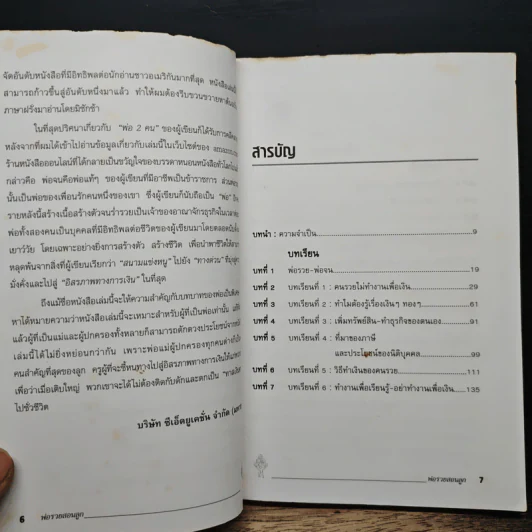 จัดอันดับหนังสือที่มีอิทธิพลต่อนักอ่านชาวอเมริกันมากที่สุด หนังสือเล่มนี้
สามารถก้าวขึ้นสู่อันดับหนึ่งมาแล้ว ทำให้ผมต้องรีบขวนขวายหาต้นฉบับ
ภาษาฝรั่งมาอ่านโดยมิชักช้า
ในที่สุดปริศนาเกี่ยวกับ "พ่อ 2 คน" ของผู้เขียนก็ได้รับการคลี่คลาย
หลังจากที่ผมได้เข้าไปอ่านข้อมูลเกี่ยวกับเล่มนี้ในเว็บไซต์ของ
ร้านหนังสือออนไลน์ที่ได้กลายเป็นขวัญใจของบรรดาหนอนหนังสือทั่วโลก
กล่าวคือ พ่อจนคือพ่อแท้ๆ ของผู้เขียนที่มีอาชีพเป็นข้าราชการ ส่วนพ่อรวย
นั้นเป็นพ่อของเพื่อนรักคนหนึ่งของเขา ซึ่งผู้เขียนก็นับถือเป็น "พ่อ"
รายหลังนี้สร้างเนื้อสร้างตัวจนร่ำรวยเป็นเจ้าของอาณาจักรธุรกิจใน
พ่อทั้งสองคนเป็นบุคคลที่มีอิทธิพลต่อชีวิตของผู้เขียนมาโดยตลอด
เยาว์วัย โดยเฉพาะอย่างยิ่งการสร้างตัว สร้างชีวิต เพื่อนำพาชีวิตให้
หลุดพ้นจากสิ่งที่ผู้เขียนเรียกว่า "สนามแข่งหนู" ไปยัง "ทางด่วน"
มั่งคั่งและไปสู่ "อิสรภาพทางการเงิน" ในที่สุด
ถึงแม้ชื่อหนังสือเล่มนี้จะให้ความสำคัญกับบทบาทของพ่อเป็น
หาได้หมายความว่าหนังสือเล่มนี้จะเหมาะสำหรับผู้ที่เป็นพ่อเท่านั้น
แล้วผู้ที่เป็นแม่และผู้ปกครองทั้งหลายก็สามารถตักตวงประโยชน์จาก
เล่มนี้ได้ไม่ยิ่งหย่อนกว่ากัน เพราะพ่อแม่ผู้ปกครองทุกคนต่างก็เป็น
คนสำคัญที่สุดของลูก ครูผู้ที่จะชี้หนทางไปสู่อิสรภาพทางการเงินให้
เพื่อว่าเมื่อเติบใหญ่ พวกเขาจะได้ไม่ต้องติดกับดักและตกเป็น
ไปชั่วชีวิต
บริษัท ซีเอ็ดยูเคชั่น จำกัด
6 พ่อรวยสอนลูก
สารบัญ
บทนำ : ความจำเป็น 9
บทเรียน
บทที่ 1 พ่อรวย-พ่อจน 19
บทที่ 2 บทเรียนที่ 1 : คนรวยไม่ทำงานเพื่อเงิน 29
บทที่ 3 บทเรียนที่ 2 : ทำไมต้องรู้เรื่องเงินๆ ทองๆ 61
บทที่ 4 บทเรียนที่ 3 : เพิ่มทรัพย์สิน-ทำธุรกิจของตนเอง 91
บทที่ 5 บทเรียนที่ 4 : ที่มาของภาษี
และประโยชน์ของนิติบุคคล 99
บทที่ 6 บทเรียนที่ 5 : วิธีทำเงินของคนรวย 111
บทที่ 7 บทเรียนที่ 6 : ทำงานเพื่อเรียนรู้-อย่าทำงานเพื่อเงิน 135
พ่อรวยสอนลูก 7